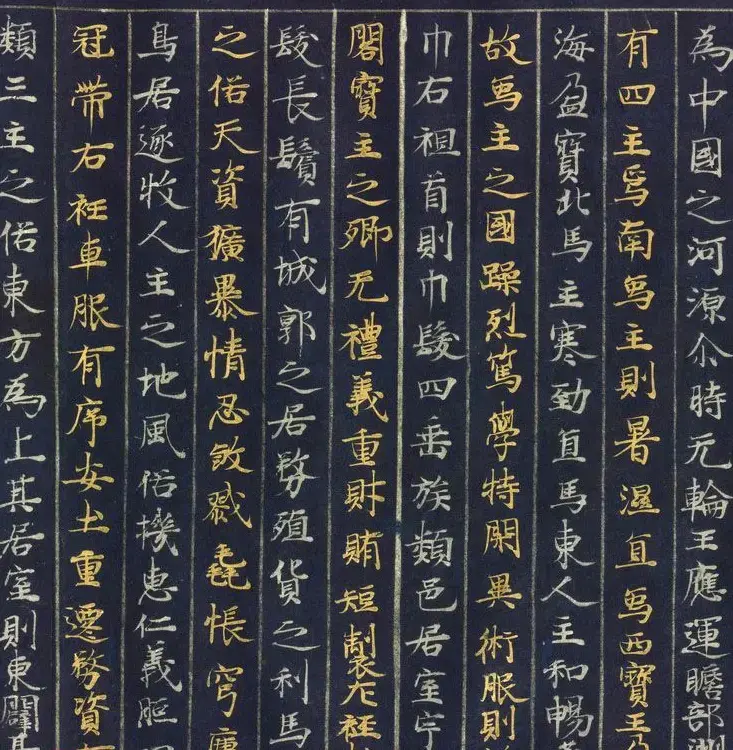 為中國之河源尒時无輪王應運贍部洲
有四主焉南象主則暑濕冝象西寶主
海盈寶北馬主寒勁冝馬東人主和暢
故象主之國躁烈篤學特閑異術服則
巾右袒首則巾髮四垂族類邑居室宇
閣寶主之鄉无禮義重財賄短製左衽
髮長鬢有城郭之居務殖貨之利馬
之俗天資獷暴情忍煞戮毳帳穹廬
鳥居逐牧人主之地風俗機惠仁義照
冠帶右衽車服有序安土重遷務資有
類三主之俗東方為上其居室則東闢其